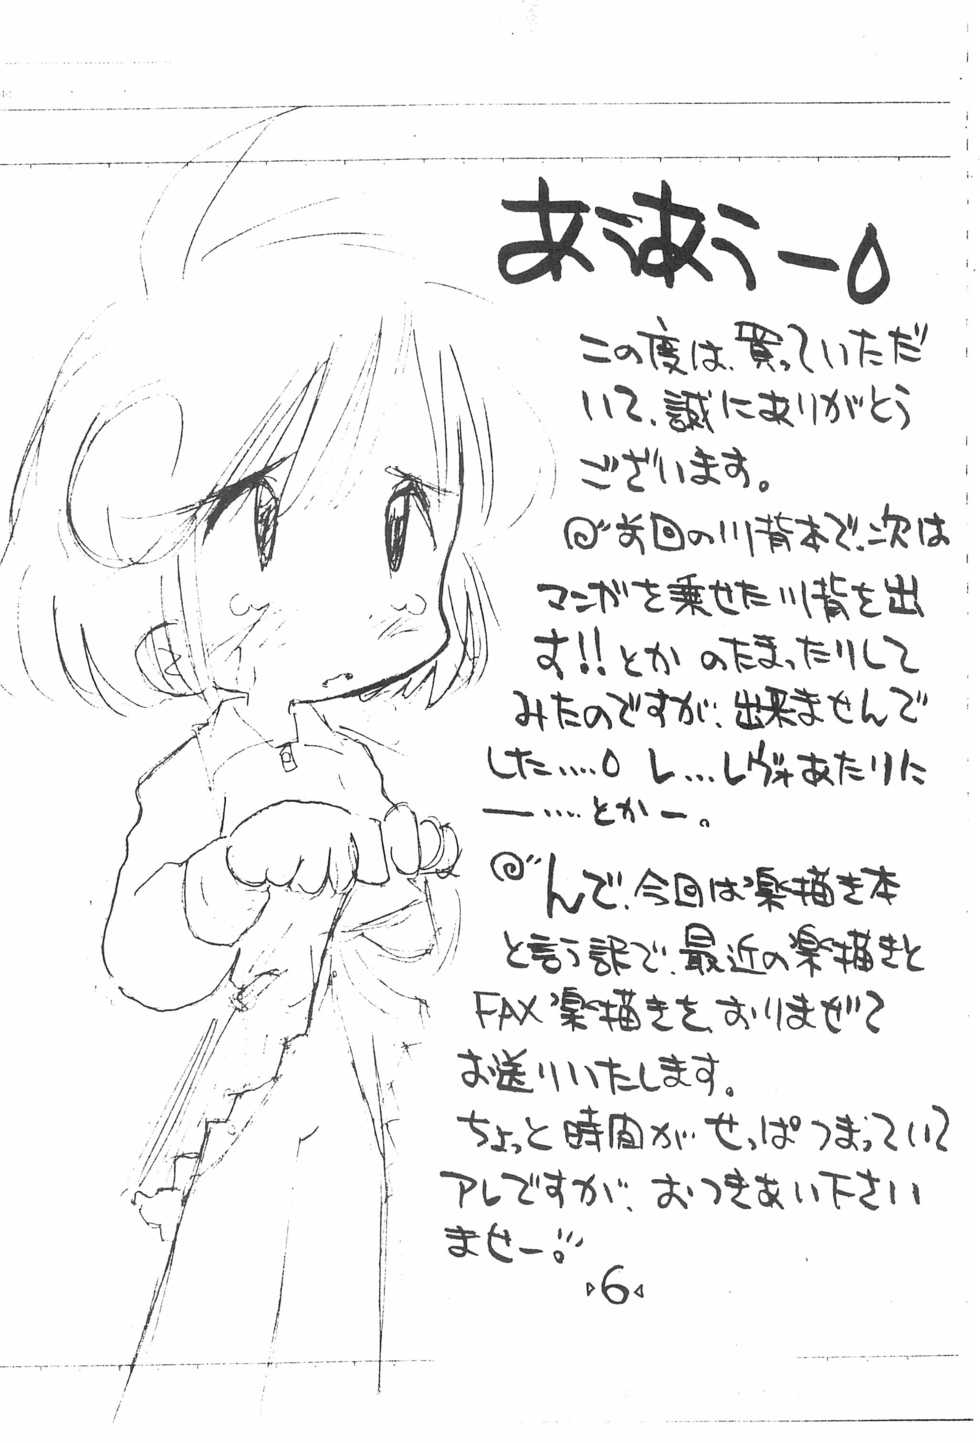 あうあうー
この度は、買っていただ
いて、誠にありがとう
ございます。
前回の川背本で、次は
マンガを乗せた川背を出
す!!とか のたまったりして
みたのですが、出来ませんで
した…‥ レ…レヴォあたりに
ー‥‥とかー。
んで、今回は楽描き本
と言う訳で、最近の楽描きと
FAX楽描きを、おりまぜて
お送りいたします。
ちょっと時間が せっぱつまっていて
アレですが、おつきあい下さい
ませー。
6